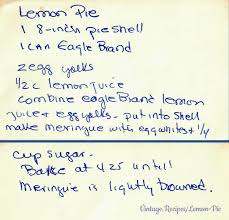 Lemon Pie
1 8-inch pie shell
1 can Eagle Brand
2 egg yolks
1/2 c lemon juice
combine eagle Brand lemon
juice & egg yolks - put into shell
make meringue with egg whites & 1/4
cup sugar -
Bake at 425 until
Meringue is lightly browned.
Vintage.Recipes/Lemon-Pie